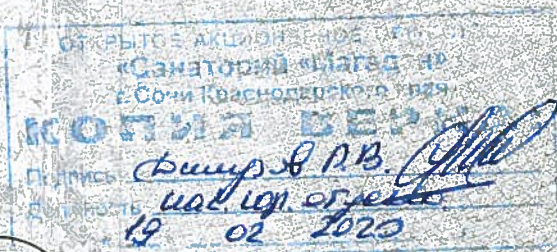 ОТКРЫТОЕ АКЦИОНЕРНОЕ
«Санаторий «Магадан»
г.Сочи Краснодарского края
КОПИЯ ВЕРНА
Подпись А.В.
Должность нач. юр. отдела
19 02 2020